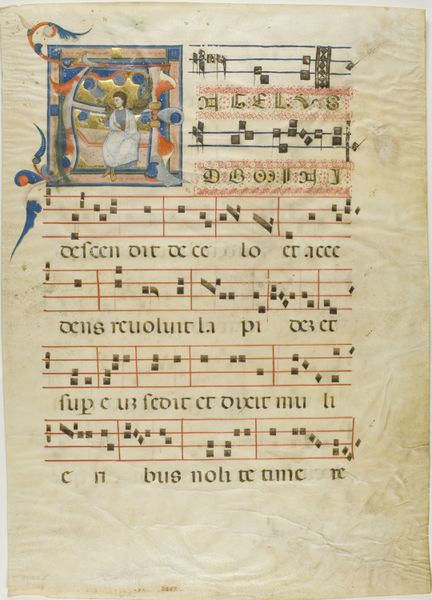 AGELVS
DOMINI
descen dit de ce lo et acce
dens reuoluit la pi dez et
sup e uz sedit et dixit mu li
e ri bus noli te time re